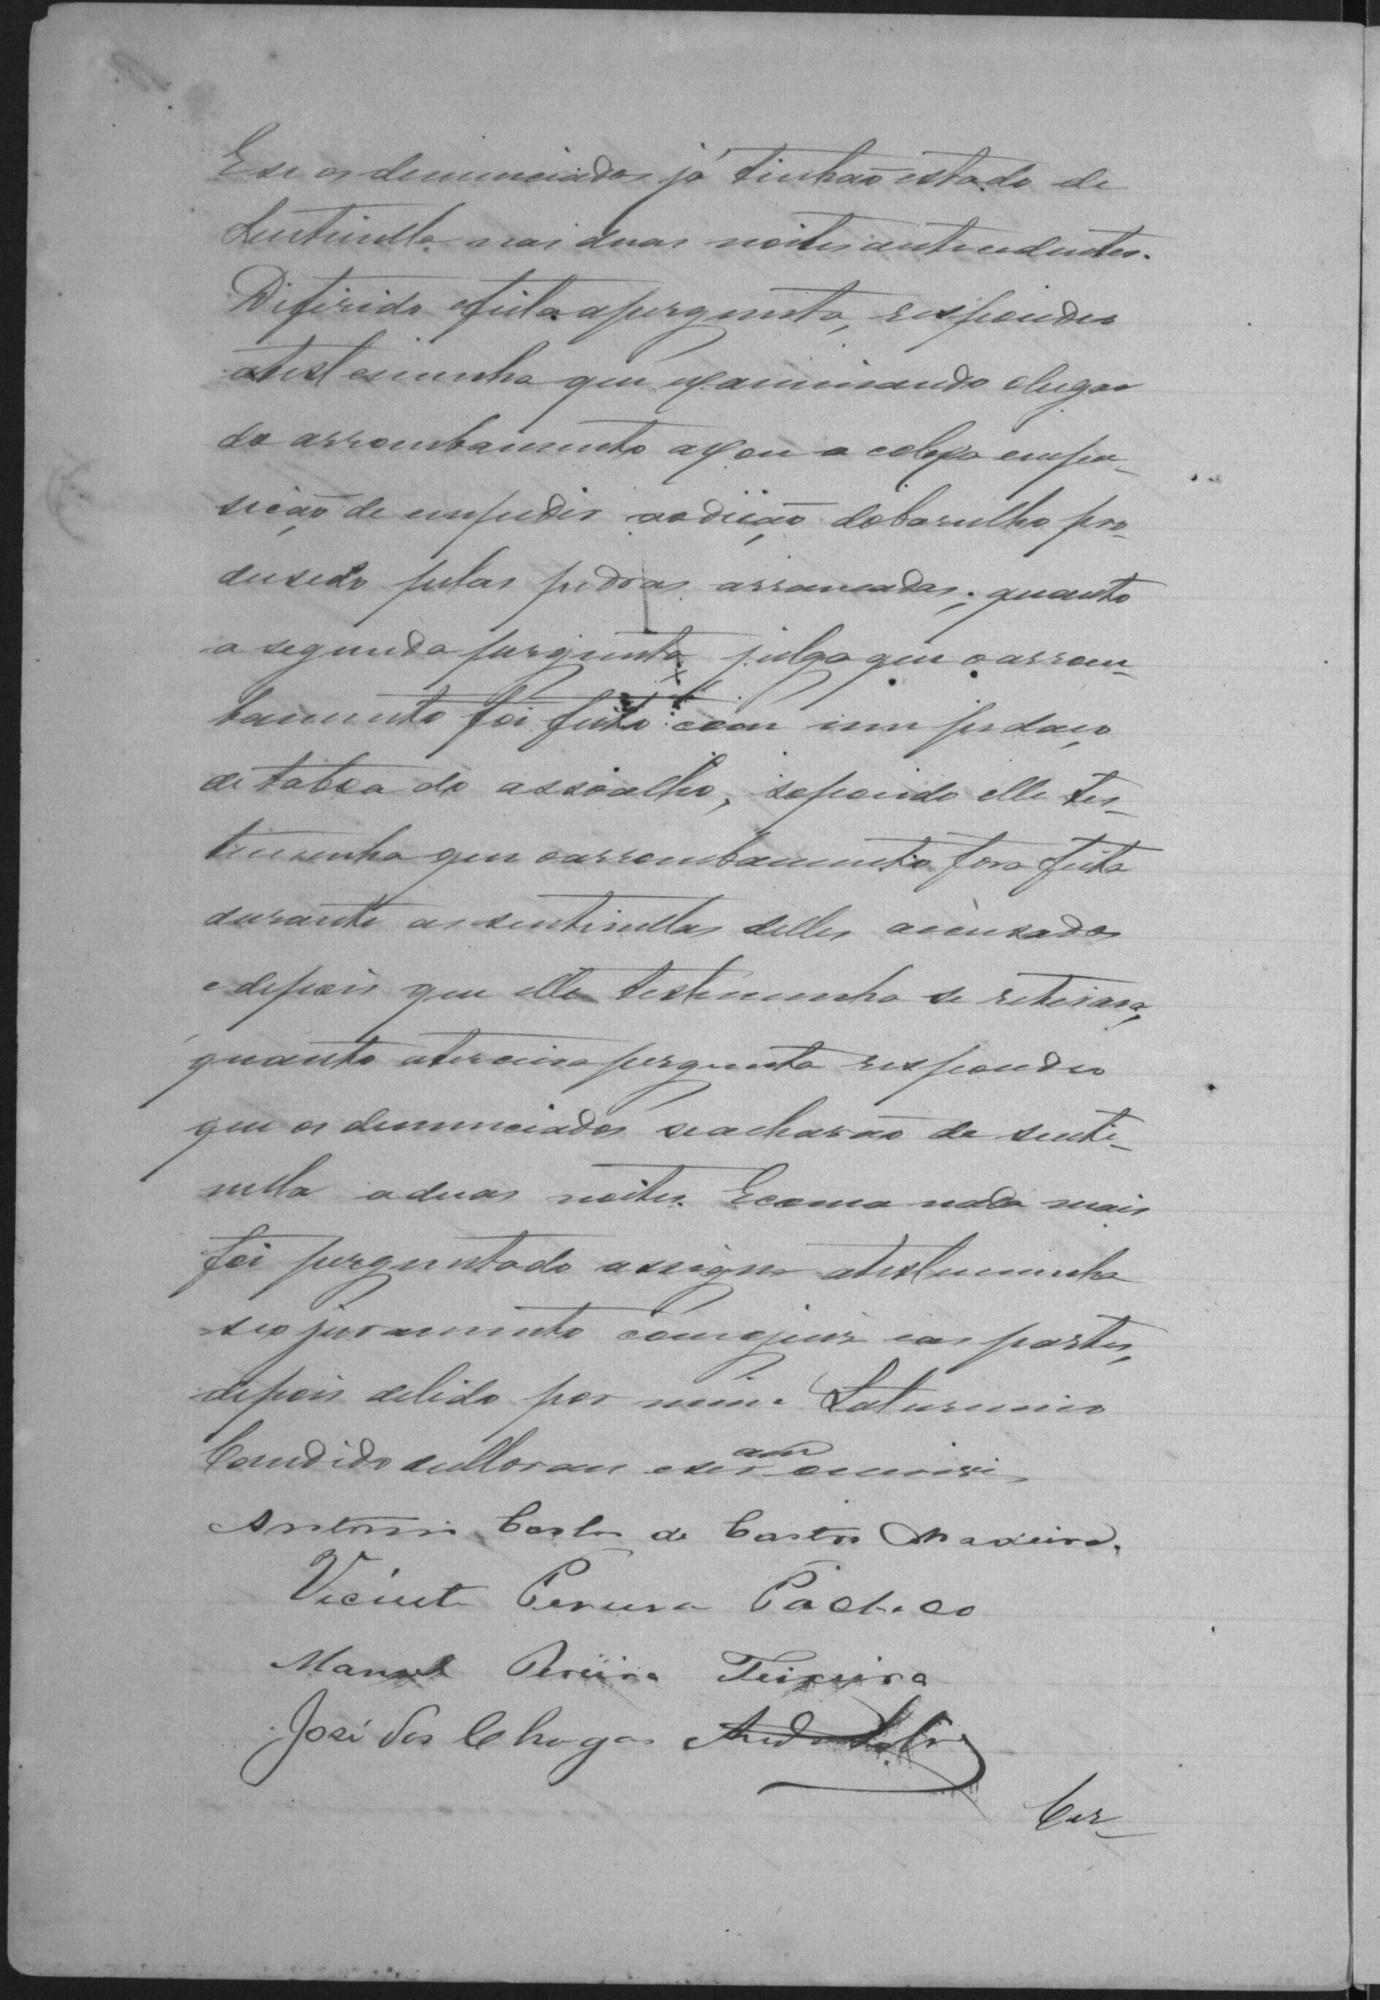 E se os denunciados já tinhão estado de
Sentinella nas duas noites antecedentes.
Diferido efeita apergunta, respondeo
atestemunha que examinando olugar
do arrombamento axou a colxa empu-
sição de empedir aodição dobarulho pro-
dusedo pelas pedras arrancadas; quanto
a segunda pergunta julga que o arrom-
bamento foi feito com um pedaço
de taboa do assoalho, sopondo elle tes-
timunha que oarrombamento fora feita
durante as sentinellas delles acusados
e depois que elle testemunha se retirara,
quanto aterceira pergunta respondeo
que os denunciados seacharão de senti-
nella aduas noites. Ecomo nada mais
foi perguntado assigna atestemunha
seo juramento comojuiz eas partes,
depois delido por mim. Saturnino
Candido escrivam
Antonio Carlos de Castro Madeira.
Vicente Pereira Pacheco
Manoel Pereira Teixeira
José das Chagas
Cer-